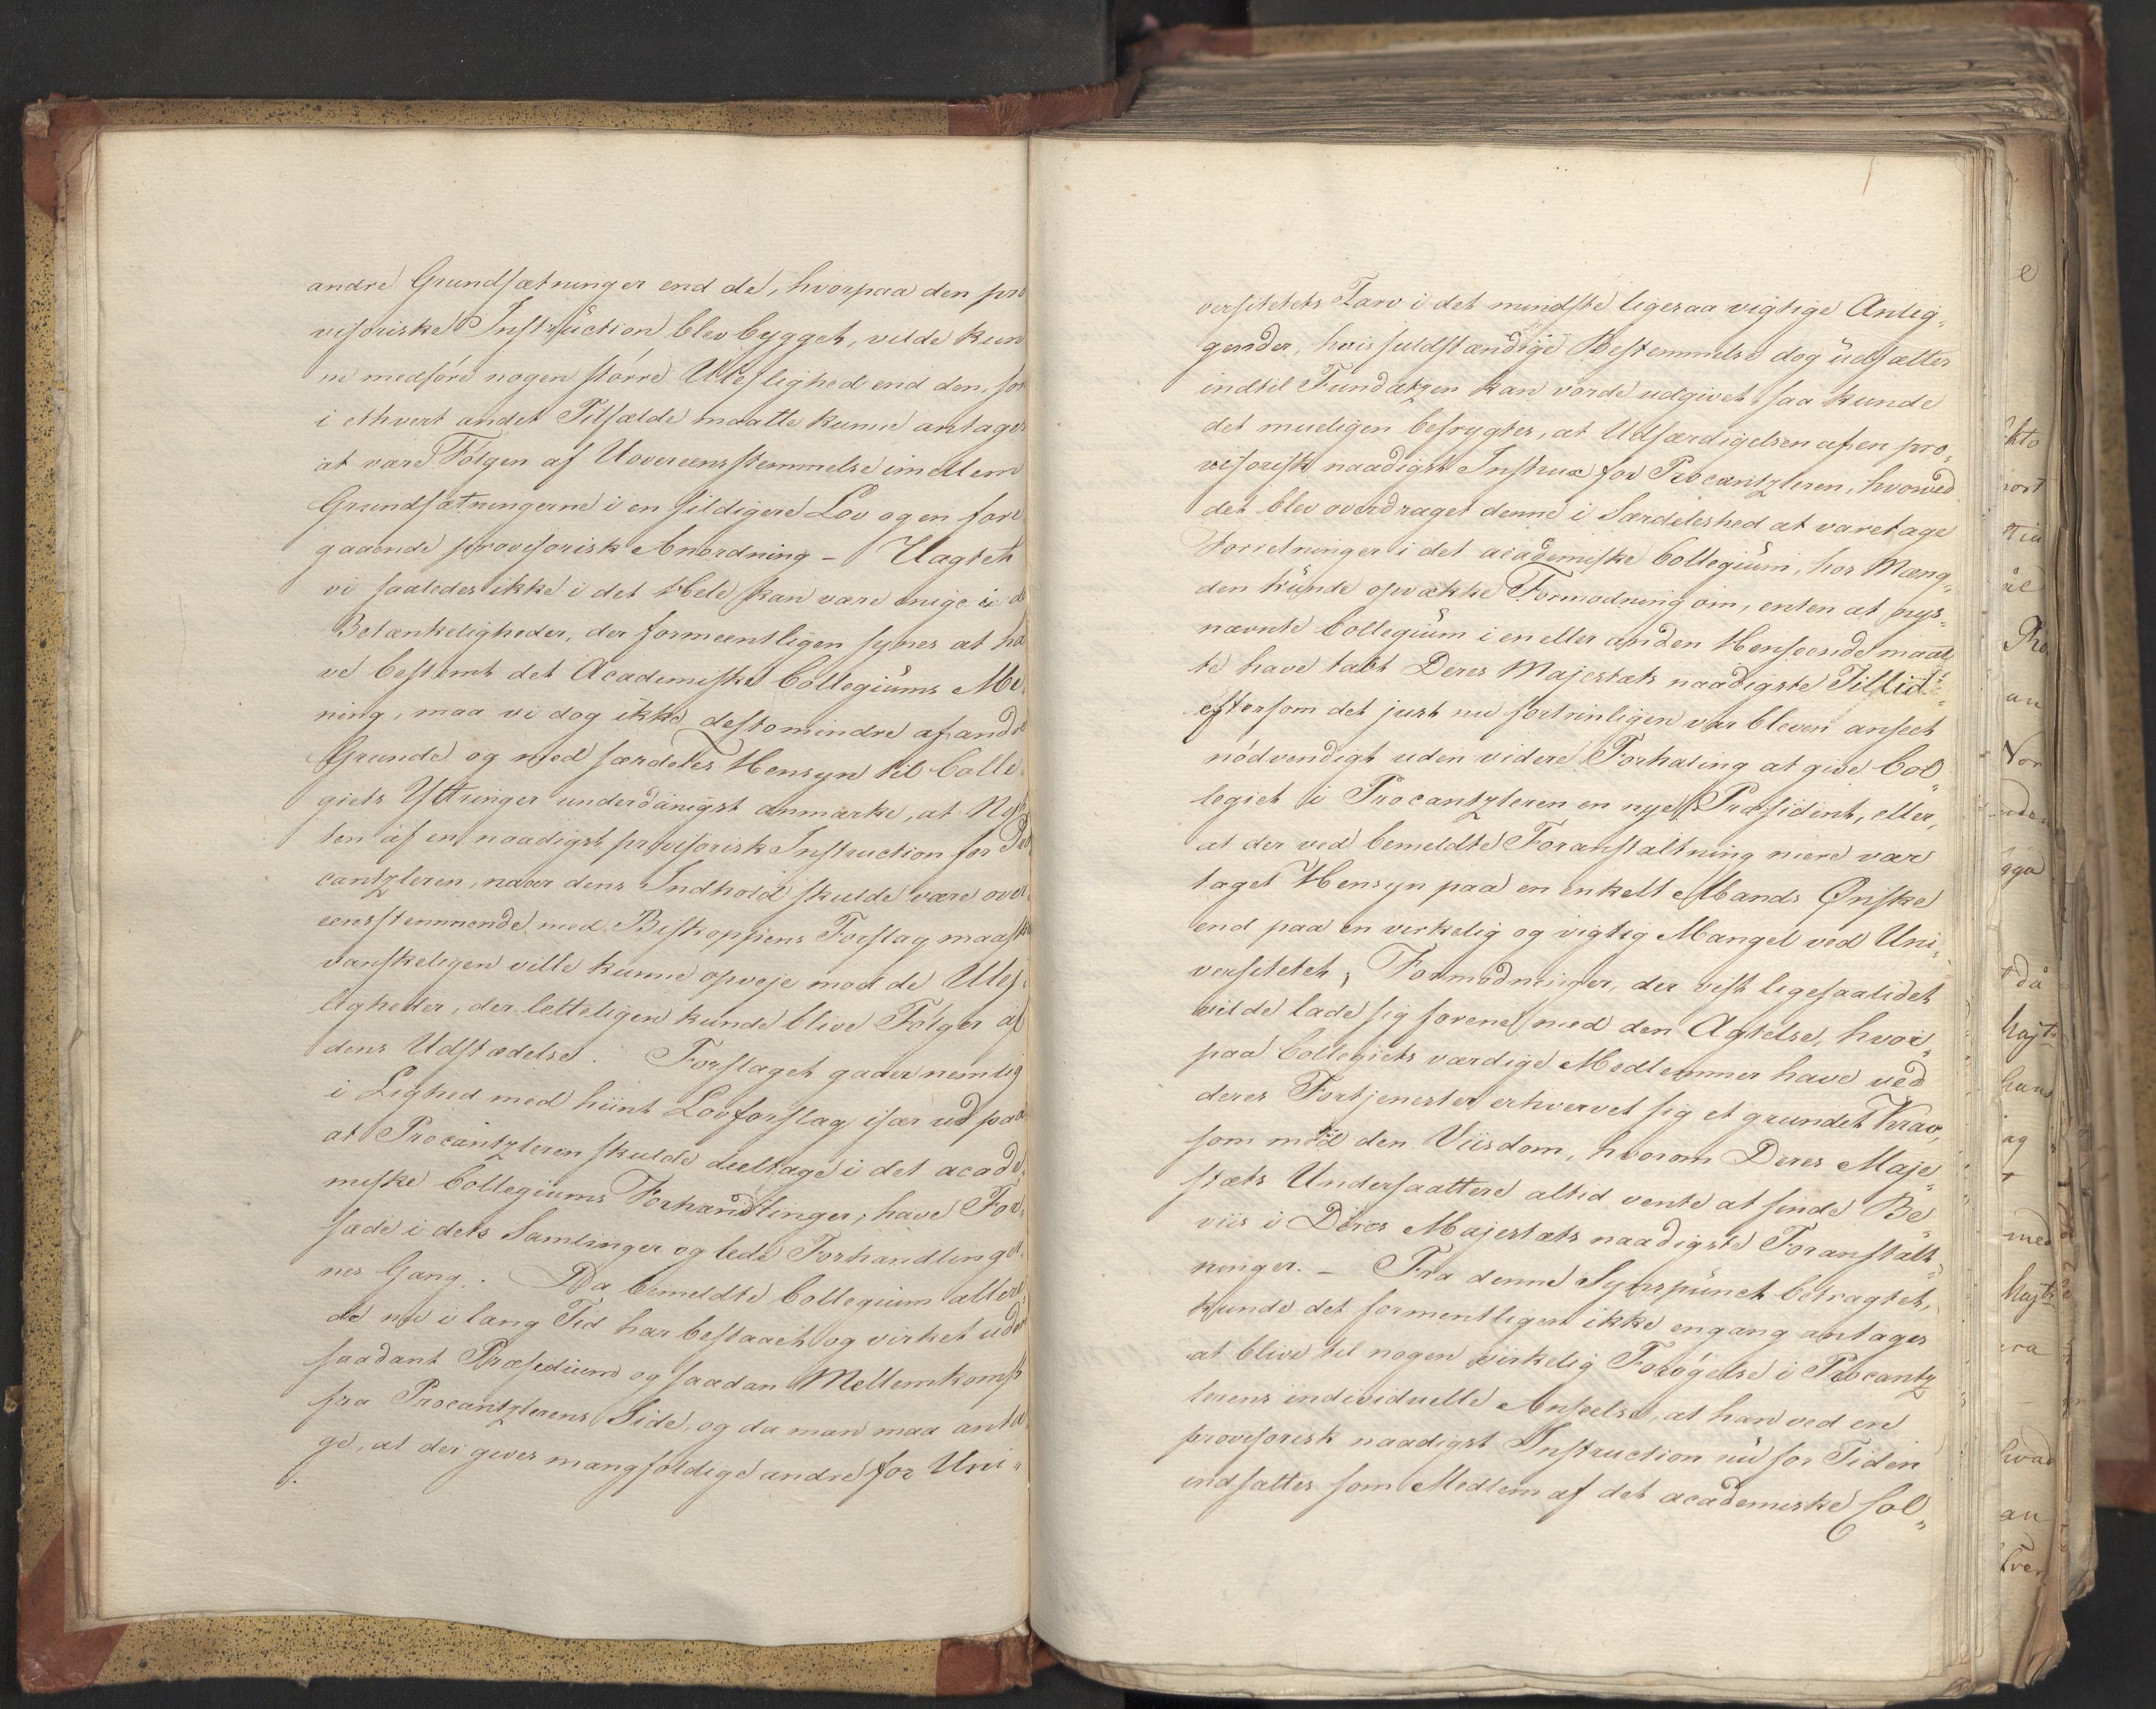 andre Grundsætninger end de, hvorpaa den pro
visoriske Instruction blev bygget, vilde kun
ne medføre nogen større Uleilighed end den, som
i ethvert andet Tilfælde maatte kunne antages
at være Følgen af Uovereensstemmelse imellem
Grundsætningerne i en sildigere Lov og en fore
gaaende provisorisk Anordning – Uagtet
vi saaledes ikke i det Hele kan være enige i de
Betænkeligheder, der formeentligen synes at ha
ve bestemt det Academiske Collegiums Me
ning, maa vi dog ikke destomindre af andre
Grunde og med særdeles Hensyn til Colle
giets Yttringer underdanigst anmærke, at Nyt
ten af en naadigst provisorisk Instruction for Pro
cantzleren, naar dens Indhold skulde være over
eensstemmende med Biskoppens Forslag maaske
vanskeligen ville kunne opveje mod de Ulej
ligheder, der letteligen kunde blive Følger af
dens Udstædelse. Forslaget gaaer nemlig
i Lighed med hiint Lovforslag især ud paa
at Procantzleren skulde deeltage i det acade
miske Collegiums Forhandlinger, have For
sæde i dets Samlinger og lede Forhandlinger
nes Gang. Da bemeldte Collegium allere
de nu i lang Tid har bestaaet og virket uden
saadant Præsidium og saadan Mellemkomst
fra Procantzlerens Side, og da man maa anta
ge, at der gives mangfoldige andre for Uni„
versitetets Tarv i det mindste ligesaa vigtige Anlig„
gender, hvis fuldstændige Bestemmelse dog udsættes
indtil Fundatzen kan vorde udgivet saa kunde
det mueligen befrygtes, at Udfærdigelsen af en pro„
visorisk naadigst Instrux for Procantzleren, hvorved
det blev overdraget denne i Særdeleshed at varetage
Forretninger i det academiske Collegium, hos Mæng„
den kunde opvække Formodning om, enten at nys„
nævnte Collegium i en eller anden Henseende maat„
te have tabt Deres Majestæts naadigste Tillid„
eftersom det just nu fortrinligen var bleven anseet
nödvendigt uden videre Forhaling at give Col„
legiet i Procantzleren en nye Præsident, eller,
at der ved bemeldte Foranstaltning mere var
taget Hensyn paa en enkelt Mands Ønske
end paa en virkelig og vigtig Mangel ved Uni„
versitetet; Formodninger, der vist ligesaalidet
vilde lade sig forene med den Agtelse, hvor„
paa Collegiets værdige Medlemmer have ved
deres Fortjenester erhvervet sig et grundet Krav,
som med den Viisdom, hvorom Deres Maje„
stæts Undersaattere altid vente at finde Be„
viis i Deres Majestæts naadigste Foranstalt„
ninger. – Fra denne Synspunct betragtet,
kunde det formentligen ikke engang antages
at blive til nogen virkelig Forøgelse i Procantz
lerens individuelle Anseelse, at han ved en
provisorisk naadigst Instruction nu for Tiden
indsættes som Medlem af det academiske Col„